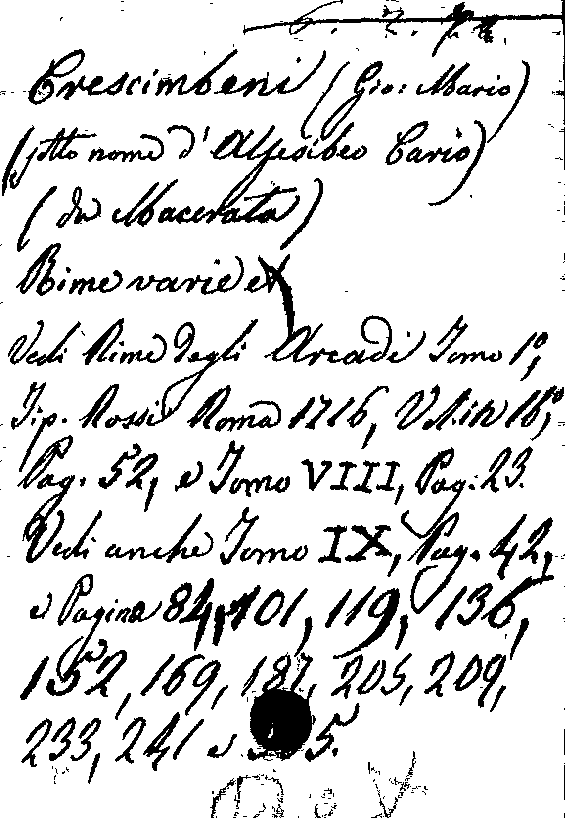 6. 2. 
Crescimbeni (Gio: Mario)
(sotto nome d'Alfesibeo Cario)
(da Macerata)
Rime varie
Vedi Rime degli Arcadi Tomo 1º,
Tip. Rossi Roma 1716, V. A. in 16º,
Pag. 52, e Tomo VIII, Pag. 23.
Vedi anche Tomo IX, Pag. 42,
e Pagina 84, 101, 119, 136,
152, 169, 187, 205, 209,
233, 241 e 5.